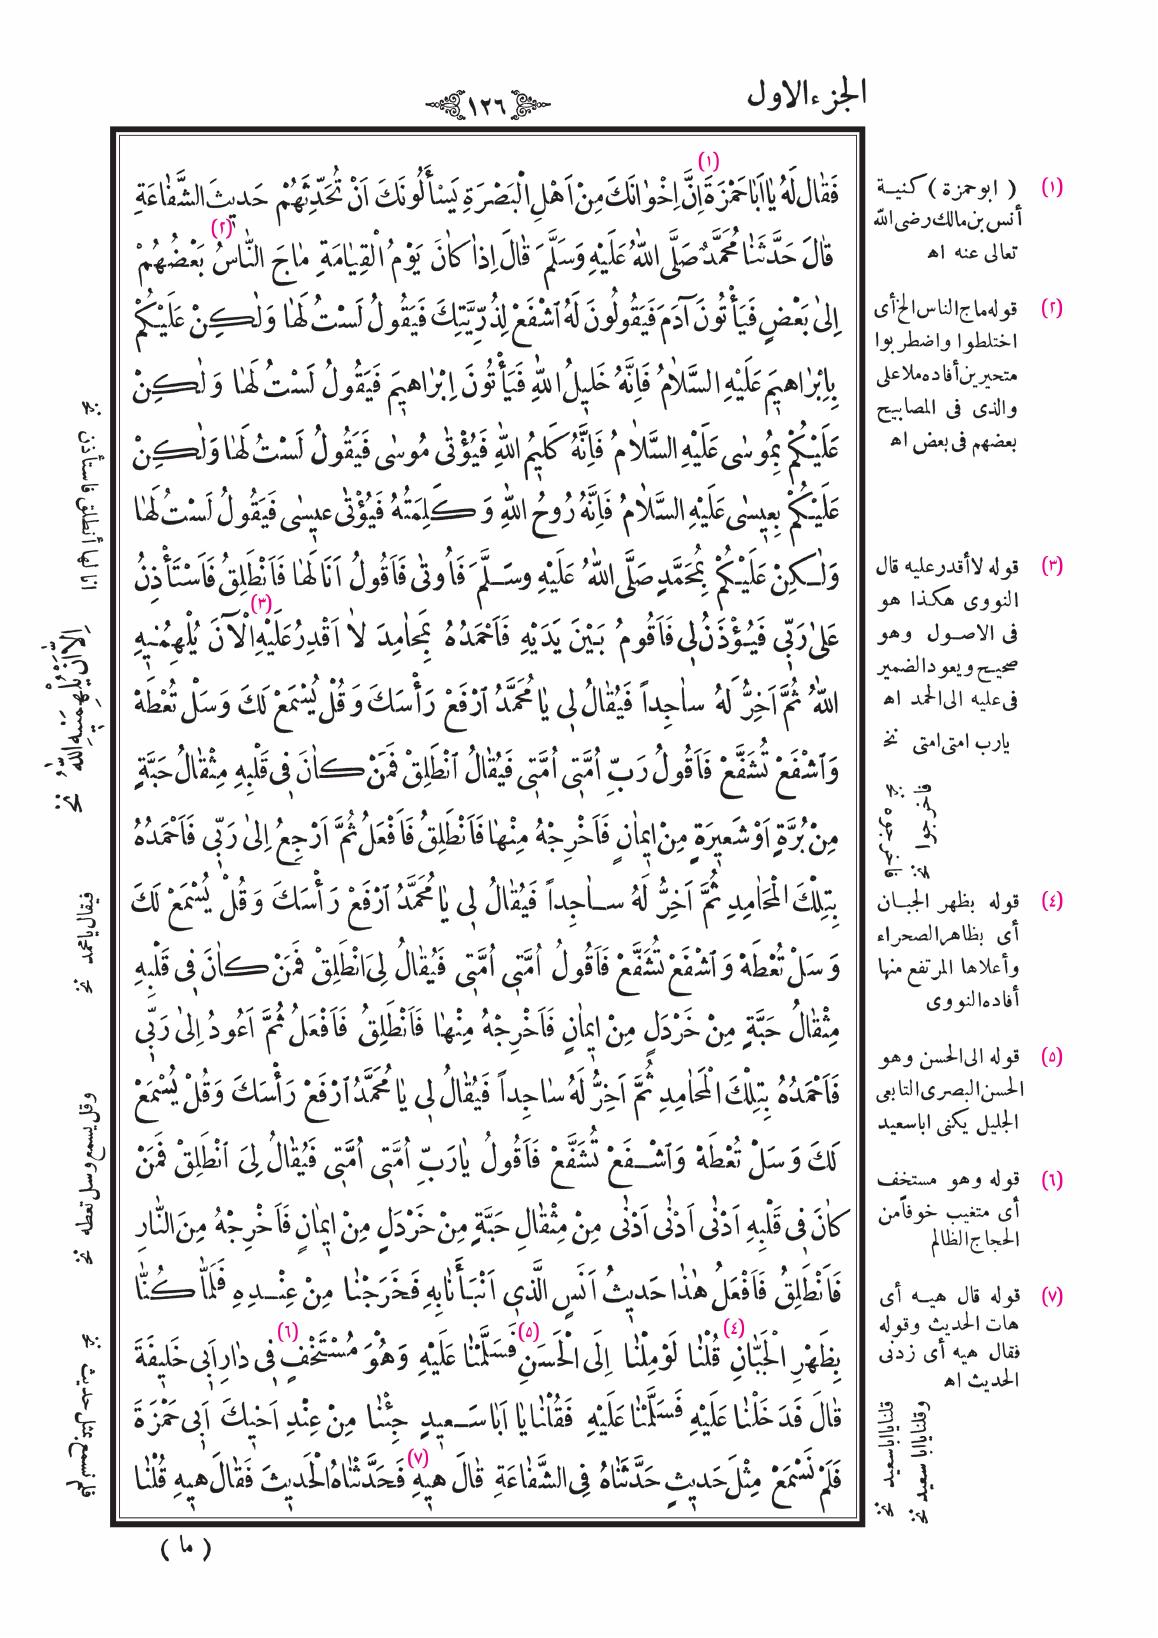 الجزء الاول
١٢٦
فَقَالَ لَهُ يَا اَبَا حَمْزَةَ (١) اِنَّ اِخْوَانَكَ مِنْ اَهْلِ الْبَصْرَةِ يَسْأَلُونَكَ اَنْ تُحَدِّثَهُمْ حَديثَ الشَّفَاعَةِ
قَالَ حَدَّثَنَا مُحَمَّدٌ صَلَّى اللّٰهُ عَلَيْهِ وَسَلَّمَ قَالَ اِذَا كَانَ يَوْمُ الْقِيَامَةِ مَاجَ النَّاسُ (٢) بَعْضُهُمْ
اِلىٰ بَعْضٍ فَيَأْتُونَ آدَمَ فَيَقُولُونَ لَهُ اشْفَعْ لِذُرِّيَّتِكَ فَيَقُولُ لَسْتُ لَهَا وَلٰكِنْ عَلَيْكُمْ
بِاِبْرَاهيمَ عَلَيْهِ السَّلَامُ فَاِنَّهُ خَليلُ اللّٰهِ فَيَأْتُونَ اِبْرَاهيمَ فَيَقُولُ لَسْتُ لَهَا وَلٰكِنْ
عَلَيْكُمْ بِمُوسٰى عَلَيْهِ السَّلَامُ فَاِنَّهُ كَليمُ اللّٰهِ فَيُؤْتٰى مُوسٰى فَيَقُولُ لَسْتُ لَهَا وَلٰكِنْ
عَلَيْكُمْ بِعيسٰى عَلَيْهِ السَّلَامُ فَاِنَّهُ رُوحُ اللّٰهِ وَكَلِمَتُهُ فَيُؤْتٰى عيسٰى فَيَقُولُ لَسْتُ لَهَا
وَلٰكِنْ عَلَيْكُمْ بِمُحَمَّدٍ صَلَّى اللّٰهُ عَلَيْهِ وسَلَّمَ فَاُوتٰى فَاَقُولُ اَنَا لَهَا فَاَنْطَلِقُ فَاَسْتَأْذِنُ
عَلىٰ رَبّى فَيُؤْذَنُ لى فَاَقُومُ بَيْنَ يَدَيْهِ فَاَحْمَدُهُ بِمَحَامِدَ لَا اَقْدِرُ عَلَيْهِ (٣) الْآنَ يُلْهِمُنيهِ
اللّٰهُ ثُمَّ اَخِرُّ لَهُ سَاجِداً فَيُقَالُ لى يَا مُحَمَّدُ ارْفَعْ رَأْسَكَ وَقُلْ يُسْمَعْ لَكَ وَسَلْ تُعْطَهْ
وَاشْفَعْ تُشَفَّعْ فَاَقُولُ رَبِّ اُمَّتى اُمَّتى فَيُقَالُ انْطَلِقْ فَمَنْ كَانَ فى قَلْبِهِ مِثْقَالُ حَبَّةٍ
مِنْ بُرَّةٍ اَوْ شَعيرَةٍ مِنْ ايمَانٍ فَاَخْرِجْهُ مِنْهَا فَاَنْطَلِقُ فَاَفْعَلُ ثُمَّ اَرْجِعُ اِلىٰ رَبّى فَاَحْمَدُهُ
بِتِلْكَ الْمَحَامِدِ ثُمَّ اَخِرُّ لَهُ سَاجِداً فَيُقَالُ لى يَا مُحَمَّدُ ارْفَعْ رَأْسَكَ وَقُلْ يُسْمَعْ لَكَ
وَسَلْ تُعْطَهْ وَاشْفَعْ تُشَفَّعْ فَاَقُولُ اُمَّتى اُمَّتى فَيُقَالُ لِىَ انْطَلِقْ فَمَنْ كَانَ فى قَلْبِهِ
مِثْقَالُ حَبَّةٍ مِنْ خَرْدَلٍ مِنْ ايمَانٍ فَاَخْرِجْهُ مِنْهَا فَاَنْطَلِقُ فَاَفْعَلُ ثُمَّ اَعُودُ اِلىٰ رَبّى
فَاَحْمَدُهُ بِتِلْكَ الْمَحَامِدِ ثُمَّ اَخِرُّ لَهُ سَاجِداً فَيُقَالُ لى يَا مُحَمَّدُ ارْفَعْ رَأْسَكَ وَقُلْ يُسْمَعْ
لَكَ وَسَلْ تُعْطَهْ وَاشْفَعْ تُشَفَّعْ فَاَقُولُ يَارَبِّ اُمَّتى اُمَّتى فَيُقَالُ لِىَ انْطَلِقْ فَمَنْ
كَانَ فى قَلْبِهِ اَدْنٰى اَدْنٰى اَدْنٰى مِنْ مِثْقَالِ حَبَّةٍ مِنْ خَرْدَلٍ مِنْ ايمَانٍ فَاَخْرِجْهُ مِنَ النَّارِ
فَاَنْطَلِقُ فَاَفْعَلُ هٰذَا حَديثُ اَنَسٍ الَّذى اَنْبَأَنَا بِهِ فَخَرَجْنَا مِنْ عِنْدِهِ فَلَمَّا كُنَّا
بِظَهْرِ الْجَبَّانِ (٤) قُلْنَا لَوْ مِلْنَا اِلَى الْحَسَنِ (٥) فَسَلَّمْنَا عَلَيْهِ وَهُوَ مُسْتَخْفٍ (٦) فى دَارِ اَبى خَليفَةَ
قَالَ فَدَخَلْنَا عَلَيْهِ فَسَلَّمْنَا عَلَيْهِ فَقُلْنَا يَا اَبَا سَعيدٍ جِئْنَا مِنْ عِنْدِ اَخيكَ اَبى حَمْزَةَ
فَلَمْ نَسْمَعْ مِثْلَ حَديثٍ حَدَّثَنَاهُ فِى الشَّفَاعَةِ قَالَ هيهِ (٧) فَحَدَّثْنَاهُ الْحَديثَ فَقَالَ هيهِ قُلْنَا
( ما )
(١) ( ابو حمزة ) كنية
أنس بن مالك رضى الله
تعالى عنه اه
(٢) قوله ماج الناس الخ أى
اختلطوا واضطربوا
متحيرين أفاده ملا على
والذى فى المصابيح
بعضهم فى بعض اه
(٣) قوله لا أقدر عليه قال
النووى هكذا هو
فى الاصول وهو
صحيح ويعود الضمير
فى عليه الى الحمد اه
يارب امتى امتى نخ
فاخرجوا نخ
فاخرجوه نخ
(٤) قوله بظهر الجبان
أى بظاهر الصحراء
وأعلاها المرتفع منها
أفاده النووى
(٥) قوله الى الحسن وهو
الحسن البصرى التابعى
الجليل يكنى ابا سعيد
(٦) قوله وهو مستخف
أى متغيب خوفاً من
الحجاج الظالم
(٧) قوله قال هيه أى
هات الحديث وقوله
فقال هيه أى زدنى
الحديث اه
وقلنا يا ابا سعيد نخ
قلنا يا ابا سعيد نخ
انا لها أنطلق فاستأذن نخ
اِلَّا اَنْ يُلْهِمَنيهِ اللّٰهُ نخ
فيقال يا محمد نخ
وقل يسمع وسل تعطه نخ
فلم نسمع بمثل حديث نخ